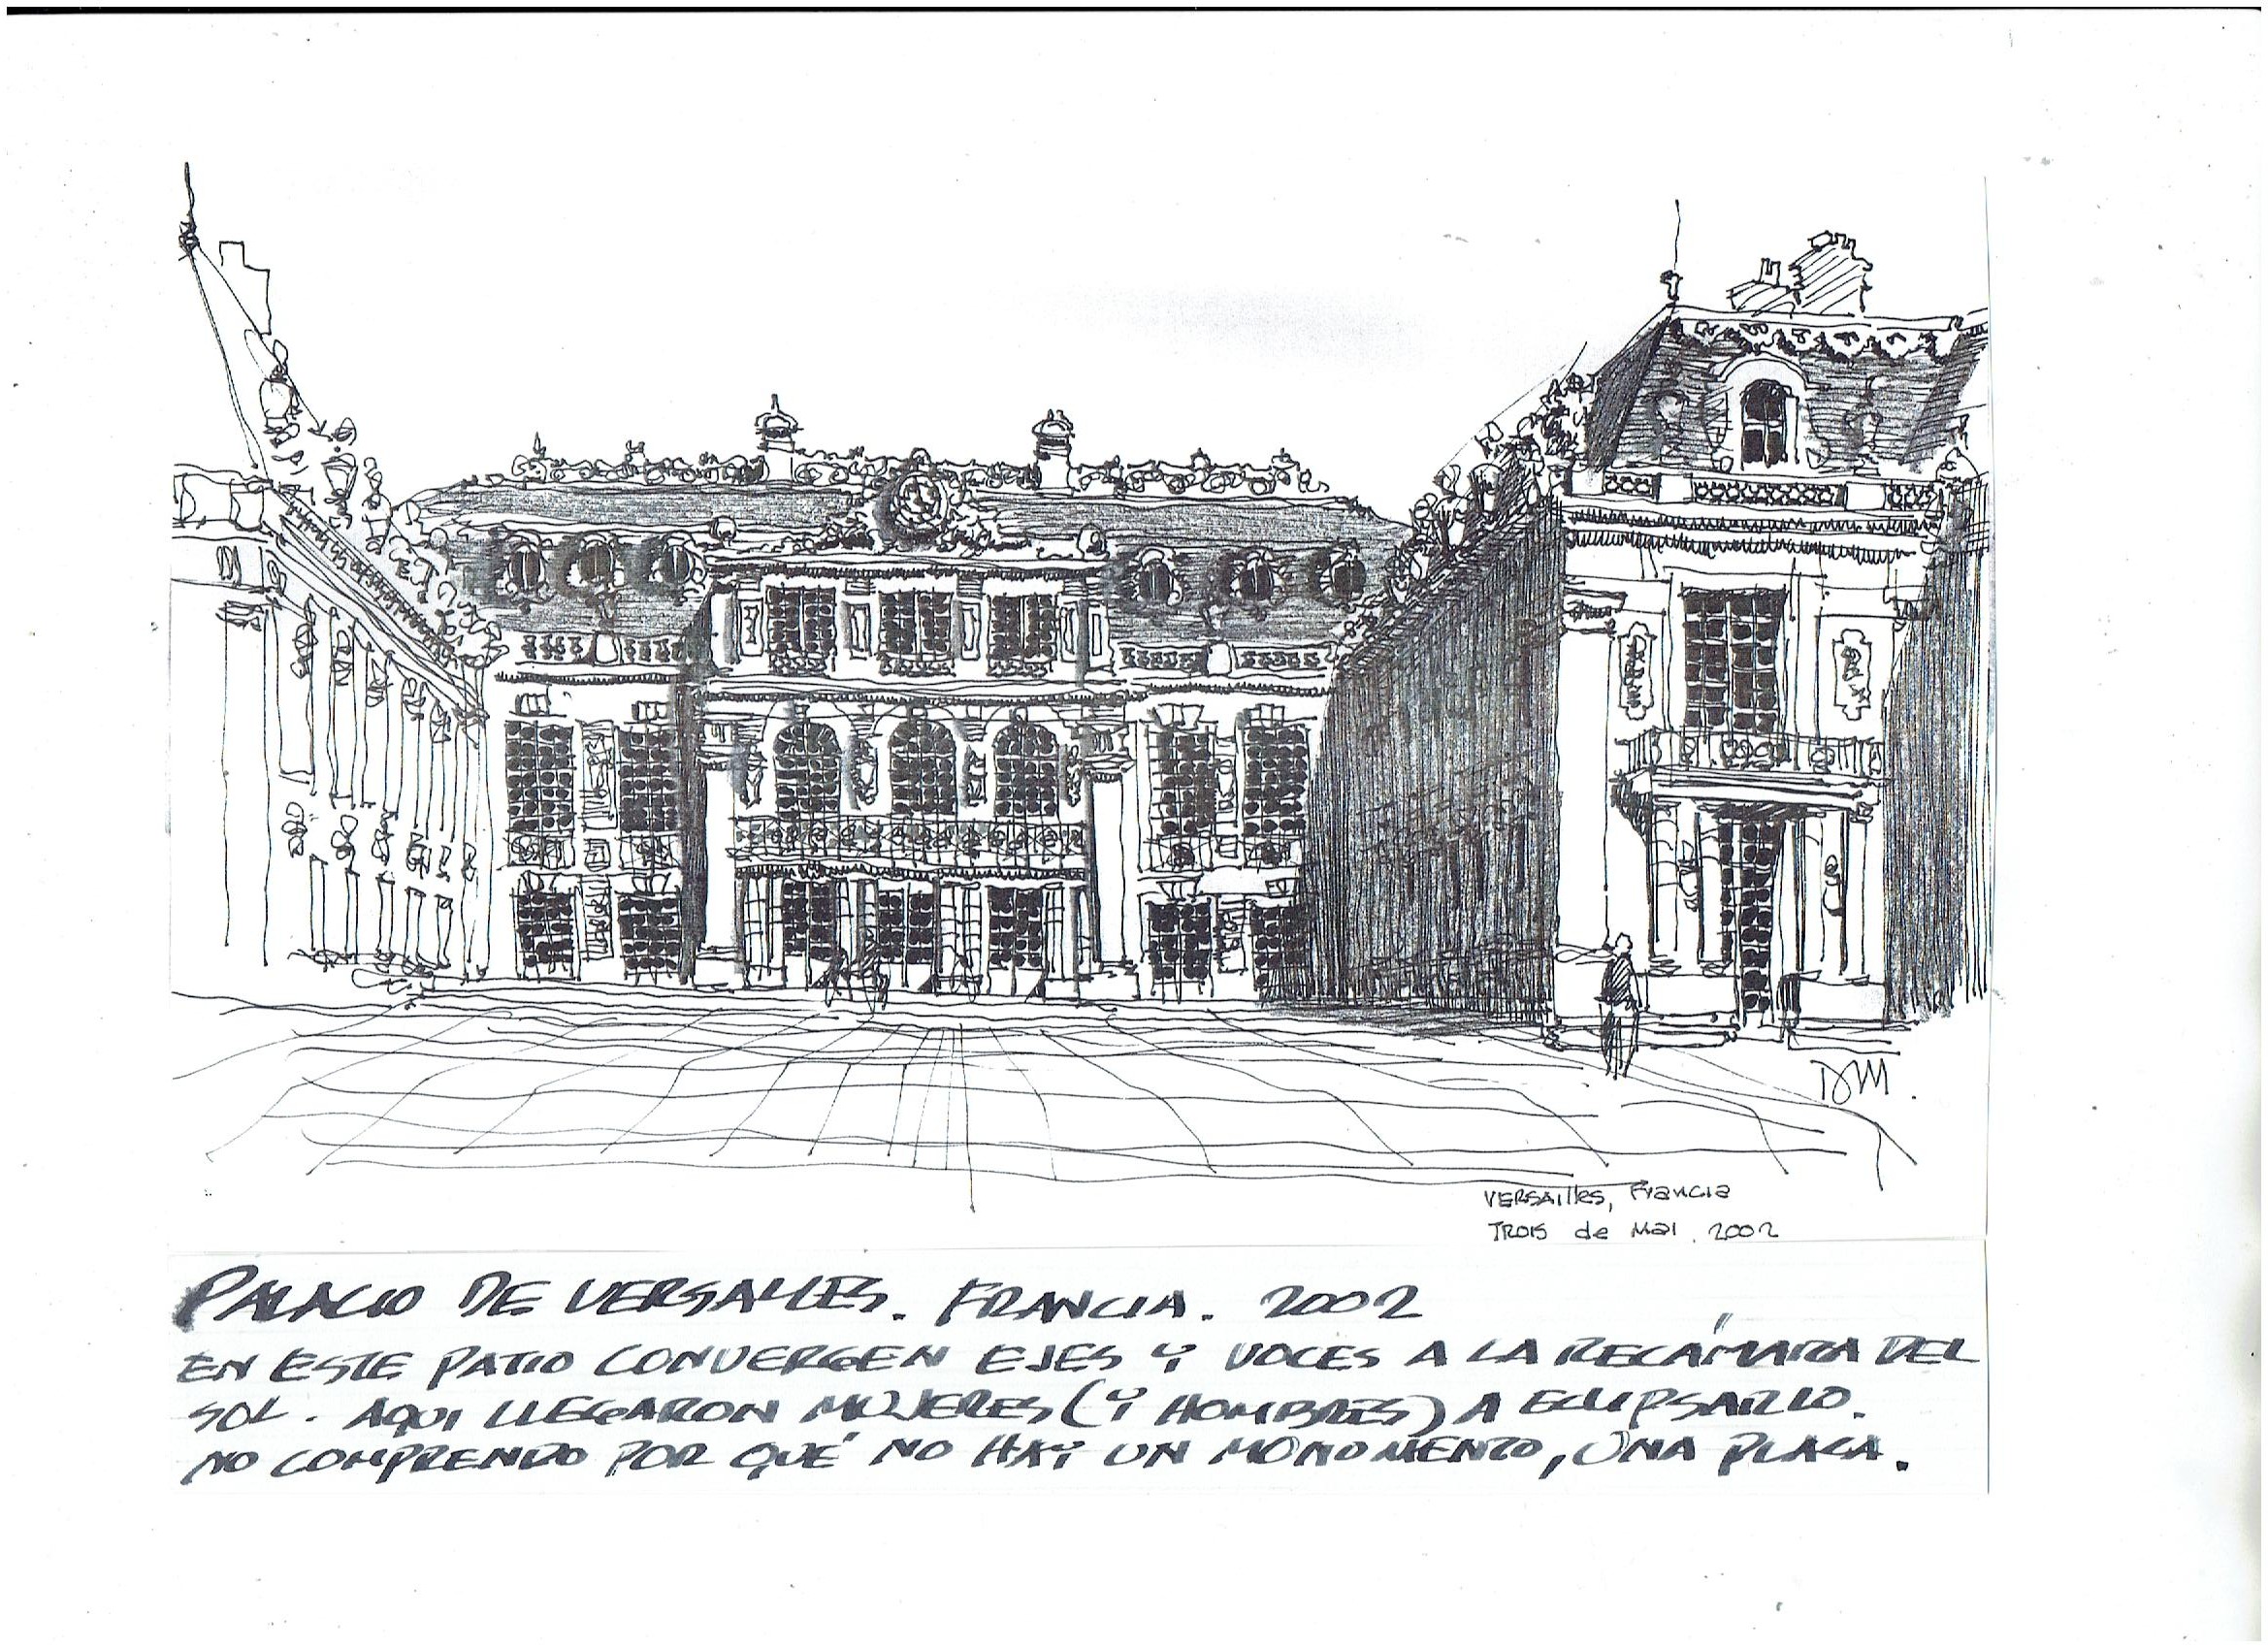 DM.
VERSAILLES, Francia
TROIS de Mai. 2002
PALACIO DE VERSALLES. FRANCIA. 2002
EN ESTE PATIO CONVERGEN EJES Y VOCES A LA RECÁMARA DEL
SOL. AQUI LLEGARON MUJERES (Y HOMBRES) A ECLIPSARLO.
NO COMPRENDO POR QUÉ NO HAY UN MONOMENTO, UNA PLACA.